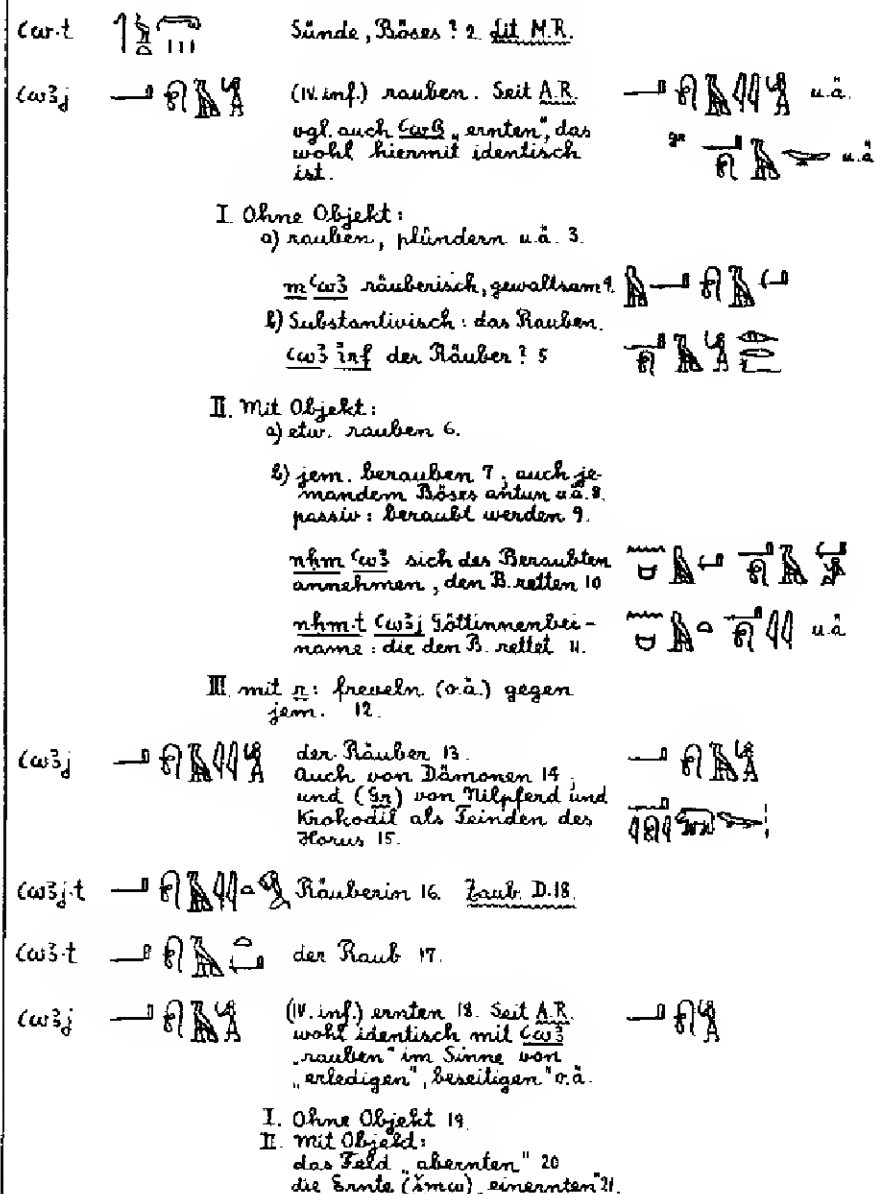 ꜥw.t Sünde, Böses ? 2. Lit. M.R.
ꜥwꜣj (IV. inf.) rauben. Seit A.R. u.ä.
vgl. auch ꜥwꜣ „ernten", das
wohl hiermit identisch
ist.
gr u.ä
I. Ohne Objekt:
a) rauben, plündern u.ä. 3.
m ꜥwꜣ räuberisch, gewaltsam 4.
b) Substantivisch: das Rauben.
ꜥwꜣ der Räuber ? 5
II. Mit Objekt:
a) etw. rauben 6.
b) jem. berauben 7; auch je-
mandem Böses antun u.ä. 8.
passiv: beraubt werden 9.
nḥm ꜥwꜣ sich des Beraubten
annehmen, den B. retten 10
nḥm.t ꜥwꜣj Göttinnenbei- u.ä
name: die den B. rettet 11.
III. mit r: freveln (o.ä.) gegen
jem. 12.
ꜥwꜣj der Räuber 13.
Auch von Dämonen 14
und (Gr) von Nilpferd und
Krokodil als Feinden des
Horus 15.
ꜥwꜣj.t Räuberin 16. Zaub. D.18.
ꜥwꜣ.t der Raub 17.
ꜥwꜣj (IV. inf.) ernten 18. Seit A.R.
wohl identisch mit ꜥwꜣ
„rauben" im Sinne von
„erledigen", beseitigen" o.ä.
I. Ohne Objekt 19.
II. Mit Objekt:
das Feld „abernten" 20
die Ernte (šmw) „einernten" 21.